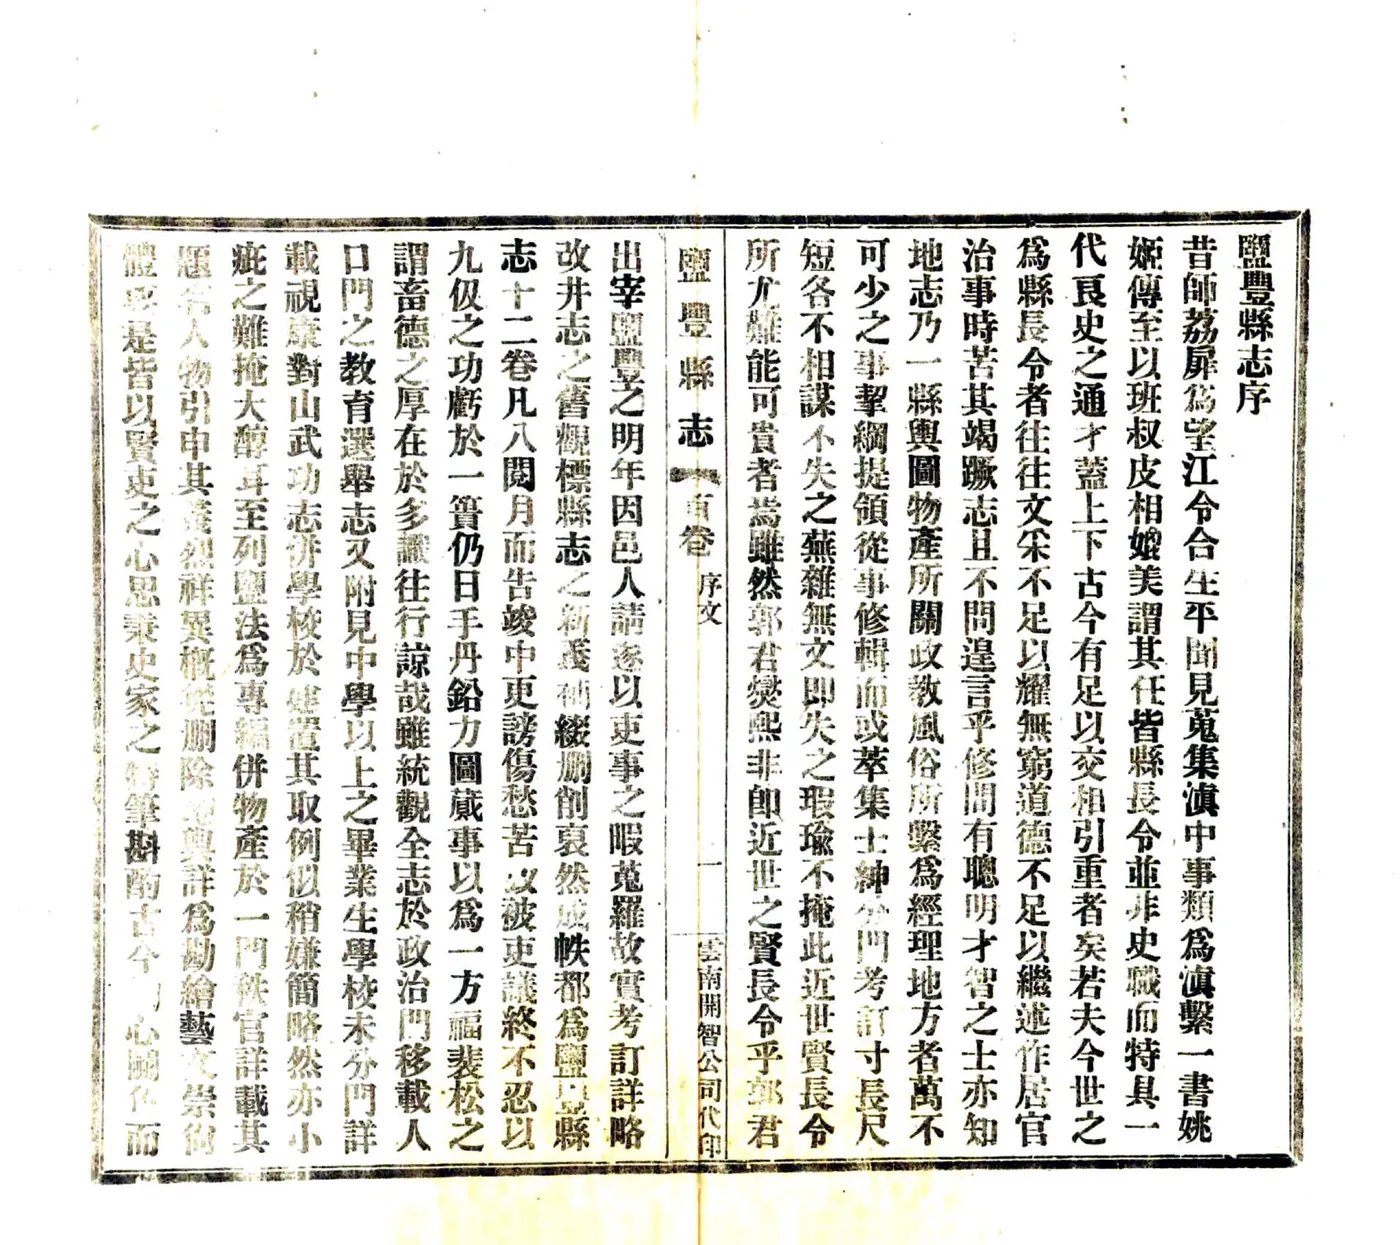 鹽豐縣志序
昔師荔扉爲望江令合生平聞見蒐集滇中事類爲滇繫一書姚
姬傳至以班叔皮相媲美謂其任皆縣長令並非史職而特具一
代良史之通才蓋上下古今有足以交相引重者矣若夫今世之
爲縣長令者往往文采不足以耀無窮道德不足以繼述作居官
治事時苦其竭蹶志且不問遑言乎修間有聰明才智之士亦知
地志乃一縣輿圖物產所關政教風俗所繫爲經理地方者萬不
可少之事挈綱提領從事修輯而或萃集士紳分門考訂寸長尺
短各不相謀不失之蕪雜無文即失之瑕瑜不掩此近世賢長令
所尤難能可貴者焉雖然郭君燮熙非卽近世之賢長令乎郭君
鹽豐縣志
首卷
序文
一
雲南開智公司代印
出宰鹽豐之明年因邑人請遂以吏事之暇蒐羅故實考訂詳略
改井志之舊觀標縣志之新義補綴刪削裒然成帙都爲鹽豐縣
志十二卷凡八閱月而告竣中更謗傷愁苦故被吏議終不忍以
九仭之功虧於一簣仍日手丹鉛力圖蕆事以爲一方福裴松之
謂畜德之厚在於多識往行諒哉雖統觀全志於政治門移載人
口門之教育選舉志又附見中學以上之畢業生學校未分門詳
載視康對山武功志併學校於建置其取例似稍嫌簡略然亦小
疵之難掩大醇耳至列鹽法爲專編併物產於一門秩官詳載其
題名人物引申其義烈祥異概從刪除輿詳爲勘繪藝文崇尙
體要是皆以賢吏之心思秉史家之特筆斟酌古今心而